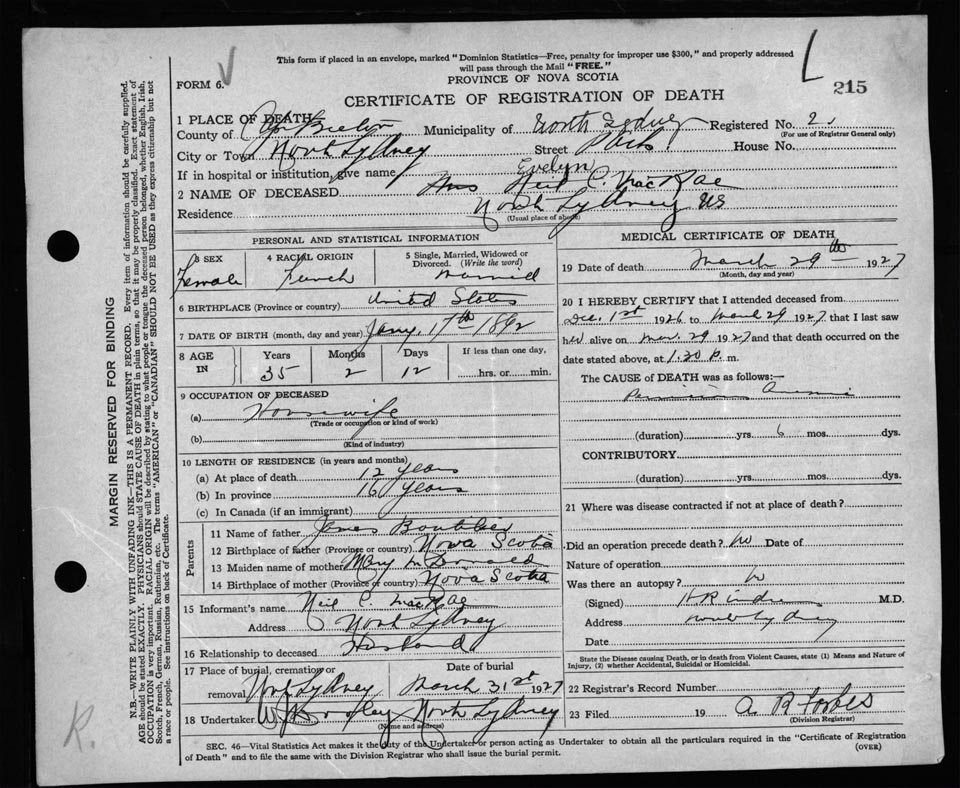 This form if placed in an envelope, marked "Dominion Statistics—Free, penalty for improper use $300," and properly addressed
will pass through the Mail "FREE."
FORM 6. PROVINCE OF NOVA SCOTIA
CERTIFICATE OF REGISTRATION OF DEATH 215
1 PLACE OF DEATH
County of Cape Breton Municipality of North Sydney Registered No. 2
(For use of Registrar General only)
City or Town North Sydney Street House No.
If in hospital or institution, give name Evelyn
2 NAME OF DECEASED Mrs Neil C. MacRae
Residence North Sydney NS
(Usual place of abode)
PERSONAL AND STATISTICAL INFORMATION
3 SEX Female
4 RACIAL ORIGIN French
5 Single, Married, Widowed or Divorced. (Write the word) married
6 BIRTHPLACE (Province or country) United States
7 DATE OF BIRTH (month, day and year) Jany. 17th 1892
8 AGE IN Years 35 Months 2 Days 12 If less than one day, hrs. or min.
9 OCCUPATION OF DECEASED
(a) Housewife
(Trade or occupation or kind of work)
(b)
(Kind of industry)
10 LENGTH OF RESIDENCE (in years and months)
(a) At place of death 12 years
(b) In province 16 years
(c) In Canada (if an immigrant)
Parents
11 Name of father James Boutilier
12 Birthplace of father (Province or country) Nova Scotia
13 Maiden name of mother Mary McDonald
14 Birthplace of mother (Province or country) Nova Scotia
15 Informant's name Neil C. MacRae
Address North Sydney
16 Relationship to deceased Husband
17 Place of burial, cremation or Date of burial
removal North Sydney March 31st 1927
18 Undertaker North Sydney
(Name and address)
MEDICAL CERTIFICATE OF DEATH
19 Date of death March 29th 1927
(Month, day and year)
20 I HEREBY CERTIFY that I attended deceased from
Dec. 1st 1926 to March 29 1927 that I last saw
her alive on Mar. 29 1927 and that death occurred on the
date stated above, at 1.20 p. m.
The CAUSE OF DEATH was as follows:—
(duration) yrs. 6 mos. dys.
CONTRIBUTORY
(duration) yrs. mos. dys.
21 Where was disease contracted if not at place of death?
Did an operation precede death? No Date of
Nature of operation
Was there an autopsy? No
(Signed) M.D.
Address North Sydney
Date
State the Disease causing Death, or in death from Violent Causes, state (1) Means and Nature of
Injury, (2) whether Accidental, Suicidal or Homicidal.
22 Registrar's Record Number
23 Filed 19 A R Forbes
(Division Registrar)
SEC. 46—Vital Statistics Act makes it the duty of the Undertaker or person acting as Undertaker to obtain all the particulars required in the "Certificate of Registration
of Death" and to file the same with the Division Registrar who shall issue the burial permit. (OVER)
MARGIN RESERVED FOR BINDING
N.B.—WRITE PLAINLY WITH UNFADING INK—THIS IS A PERMANENT RECORD. Every item of information should be carefully supplied.
AGE should be stated EXACTLY. PHYSICIANS should STATE CAUSE OF DEATH in plain terms, so that it may be properly classified. Exact statement of
OCCUPATION is very important. RACIAL ORIGIN will be described by stating to what people or tongue the deceased person belonged, whether English, Irish,
Scotch, French, German, Russian, Ruthenian, etc. The terms "AMERICAN" or "CANADIAN" SHOULD NOT BE USED as they express citizenship but not
a race or people. See instructions on back of Certificate.
R.